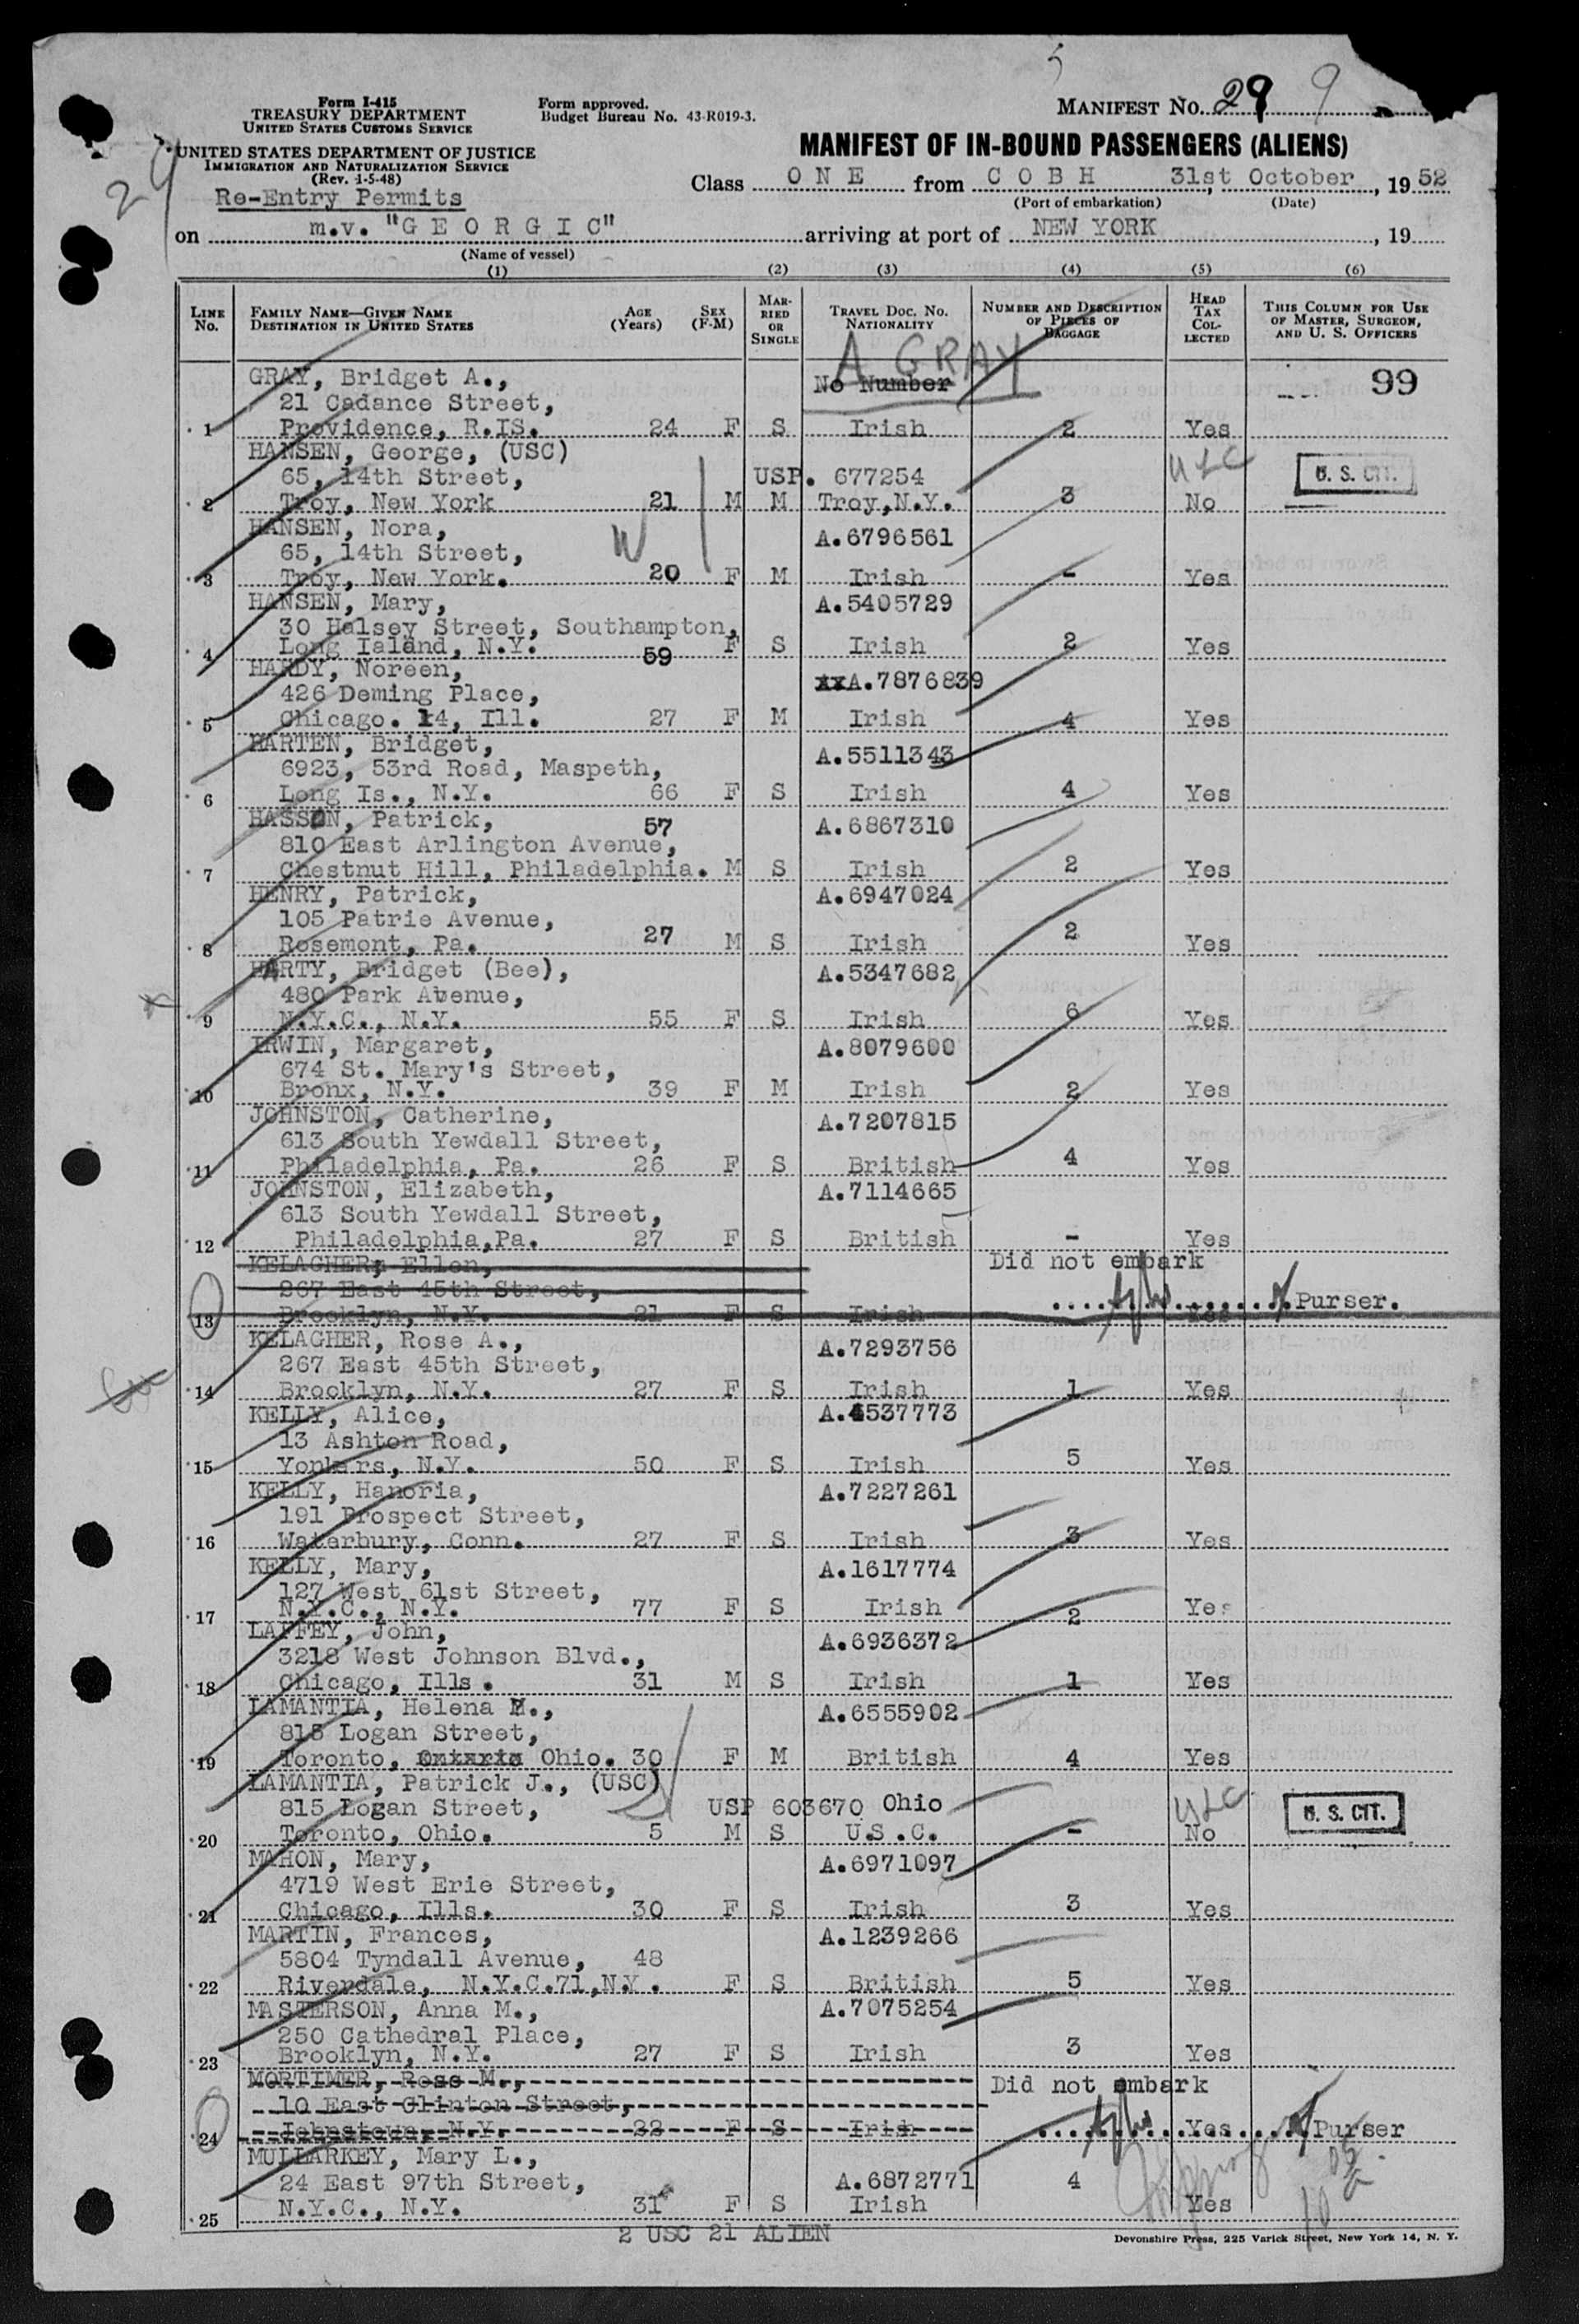 Form I-415
TREASURY DEPARTMENT
UNITED STATES CUSTOMS SERVICE
Form approved.
Budget Bureau No. 43-R019-3.
MANIFEST NO. 29 9
UNITED STATES DEPARTMENT OF JUSTICE
IMMIGRATION AND NATURALIZATION SERVICE
(Rev. 1-5-48)
Re-Entry Permits
MANIFEST OF IN-BOUND PASSENGERS (ALIENS)
Class O N E from C O B H 31st October, 1952
(Port of embarkation) (Date)
on m.v. "G E O R G I C" arriving at port of NEW YORK, 19
(Name of vessel)
(1) (2) (3) (4) (5) (6)
LINE No. FAMILY NAME—GIVEN NAME DESTINATION IN UNITED STATES AGE (Years) SEX (F-M) MARRIED OR SINGLE TRAVEL DOC. NO. NATIONALITY NUMBER AND DESCRIPTION OF PIECES OF BAGGAGE HEAD TAX COLLECTED THIS COLUMN FOR USE OF MASTER, SURGEON, AND U. S. OFFICERS
A GRAY
GRAY, Bridget A., No Number 99
21 Cadance Street,
1 Providence, R.IS. 24 F S Irish 2 Yes
HANSEN, George, (USC)
65, 14th Street, USP. 677254 U.S. CIT.
2 Troy, New York 21 M M Troy,N.Y. 3 No
HANSEN, Nora, A.6796561
65, 14th Street,
3 Troy, New York. 20 F M Irish - Yes
HANSEN, Mary, A.5405729
30 Halsey Street, Southampton,
4 Long Ialand, N.Y. 59 F S Irish 2 Yes
HARDY, Noreen, xxA.7876839
426 Deming Place,
5 Chicago. 14, Ill. 27 F M Irish 4 Yes
HARTEN, Bridget, A.5511343
6923, 53rd Road, Maspeth,
6 Long Is., N.Y. 66 F S Irish 4 Yes
HASSON, Patrick, 57 A.6867310
810 East Arlington Avenue,
7 Chestnut Hill, Philadelphia. M S Irish 2 Yes
HENRY, Patrick, A.6947024
105 Patrie Avenue,
8 Rosemont, Pa. 27 M S Irish 2 Yes
HARTY, Bridget (Bee), A.5347682
480 Park Avenue,
9 N.Y.C., N.Y. 55 F S Irish 6 Yes
IRWIN, Margaret, A.8079600
674 St. Mary's Street,
10 Bronx, N.Y. 39 F M Irish 2 Yes
JOHNSTON, Catherine, A.7207815
613 South Yewdall Street,
11 Philadelphia, Pa. 26 F S British 4 Yes
JOHNSTON, Elizabeth, A.7114665
613 South Yewdall Street,
12 Philadelphia,Pa. 27 F S British - Yes
KELAGHER, Ellen, Did not embark
267 East 45th Street, Purser.
13 Brooklyn, N.Y. 21 F S Irish Yes
KELAGHER, Rose A., A.7293756
267 East 45th Street,
14 Brooklyn, N.Y. 27 F S Irish 1 Yes
KELLY, Alice, A.4537773
13 Ashton Road,
15 Yonkers, N.Y. 50 F S Irish 5 Yes
KELLY, Hanoria, A.7227261
191 Prospect Street,
16 Waterbury, Conn. 27 F S Irish 3 Yes
KELLY, Mary, A.1617774
127 West 61st Street,
17 N.Y.C., N.Y. 77 F S Irish 2 Yes
LAFFEY, John, A.6936372
3218 West Johnson Blvd.,
18 Chicago, Ills. 31 M S Irish 1 Yes
LAMANTIA, Helena M., A.6555902
815 Logan Street,
19 Toronto, Ontario Ohio. 30 F M British 4 Yes
LAMANTIA, Patrick J., (USC)
815 Logan Street, USP 603670 Ohio U. S. CIT.
20 Toronto, Ohio. 5 M S U.S.C. - No
MAHON, Mary, A.6971097
4719 West Erie Street,
21 Chicago, Ills. 30 F S Irish 3 Yes
MARTIN, Frances, A.1239266
5804 Tyndall Avenue, 48
22 Riverdale, N.Y.C.71,N.Y. F S British 5 Yes
MASTERSON, Anna M., A.7075254
250 Cathedral Place,
23 Brooklyn, N.Y. 27 F S Irish 3 Yes
MORTIMER, Rose M., Did not embark
10 East Clinton Street,
24 Johnstown, N.Y. 22 F S Irish Yes Purser
MULLARKEY, Mary L.,
24 East 97th Street, A.6872771 4
25 N.Y.C., N.Y. 31 F S Irish Yes
2 USC 21 ALIEN
Devonshire Press, 225 Varick Street, New York 14, N. Y.